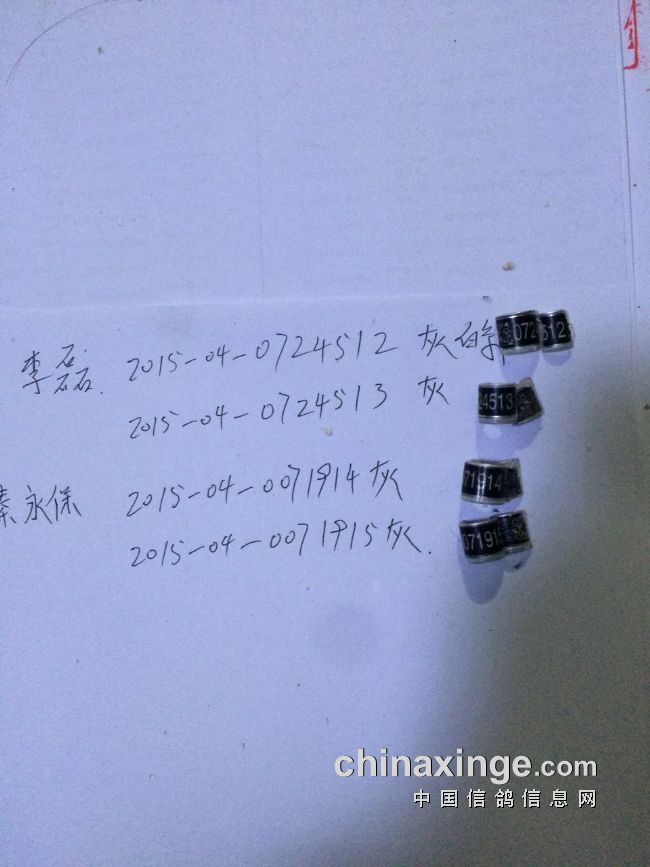 李磊. 2015-04-0724512 灰白条
2015-04-0724513 灰
秦永保 2015-04-0071914 灰
2015-04-0071915 灰.
072
512
24513
71914
07191
chinaxinge.com
中国信鸽信息网